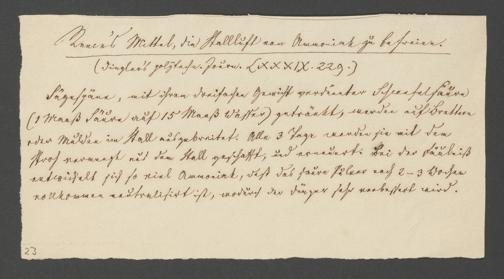 Reece's Mittel, die Stallluft von Ammoniak zu befreien.
(Dinglers polytechn. Journ. LXXXIX. 229.)
Sägespäne, mit ihrem dreifachen Gewicht verdünnter Schwefelsäure
(1 Maaß Säure auf 15 Maaß Wasser) getränkt, werden auf Brettern
oder Mulden im Stall ausgebreitet. Alle 3 Tage werden sie mit dem
Stroh vermengt aus dem Stall geschafft, und erneuert. Bei der Fäulniß
entwickelt sich so viel Ammoniak, daß das saure Pulver nach 2-3 Wochen
vollkommen neutralisirt ist, wodurch der Dünger sehr verbessert wird.
23